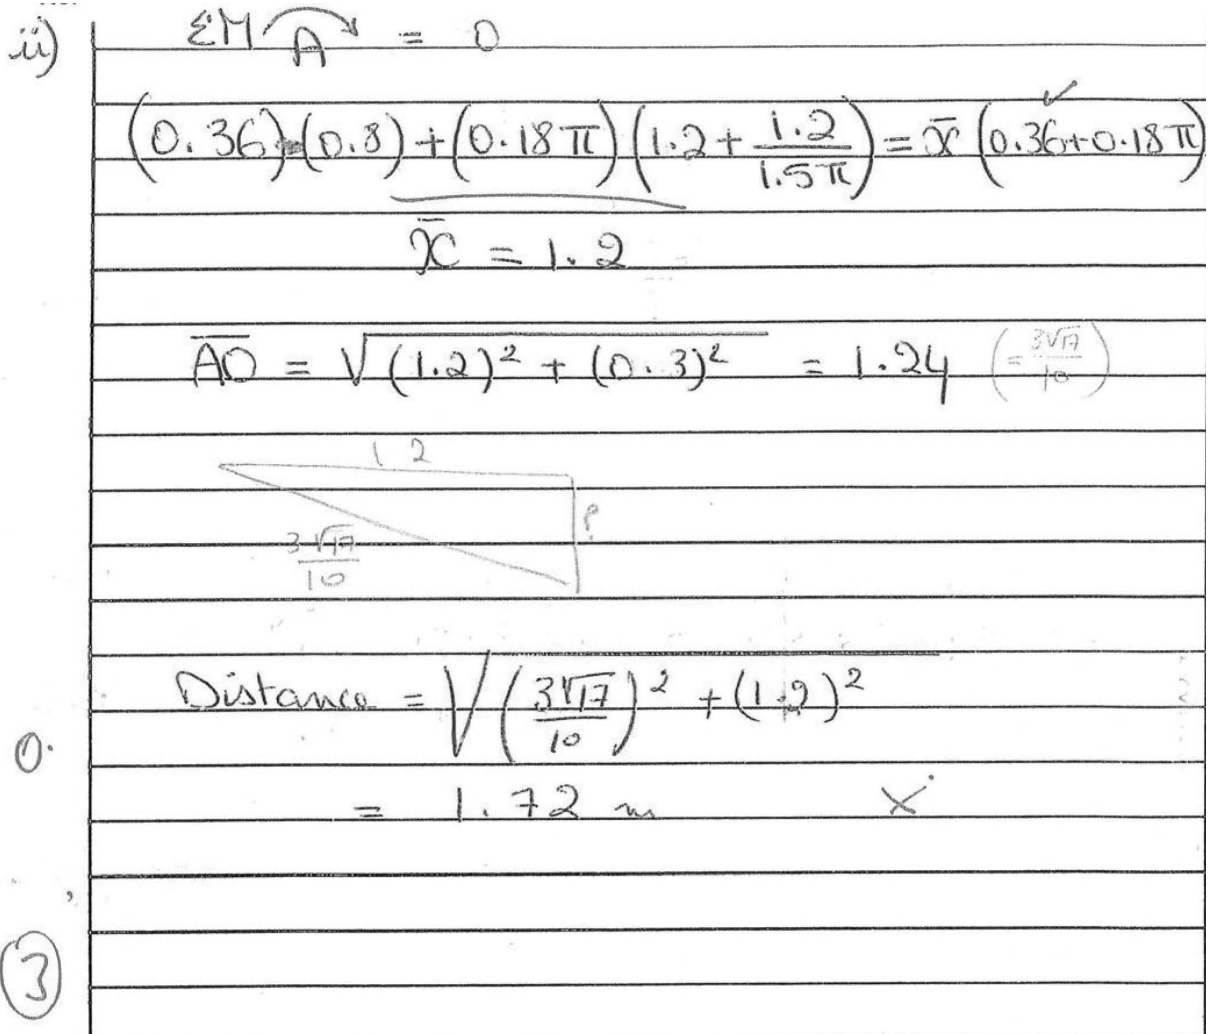 ii) ΣM A = 0
(0.36)(0.8) + (0.18π)(1.2 + 1.2/1.5π) = x̄ (0.36+0.18π) ✓
x̄ = 1.2
AO = √((1.2)² + (0.3)²) = 1.24 (= 3√17/10)
1.2
?
3√17/10
Distance = √((3√17/10)² + (1.2)²)
0.
= 1.72 m ×
3